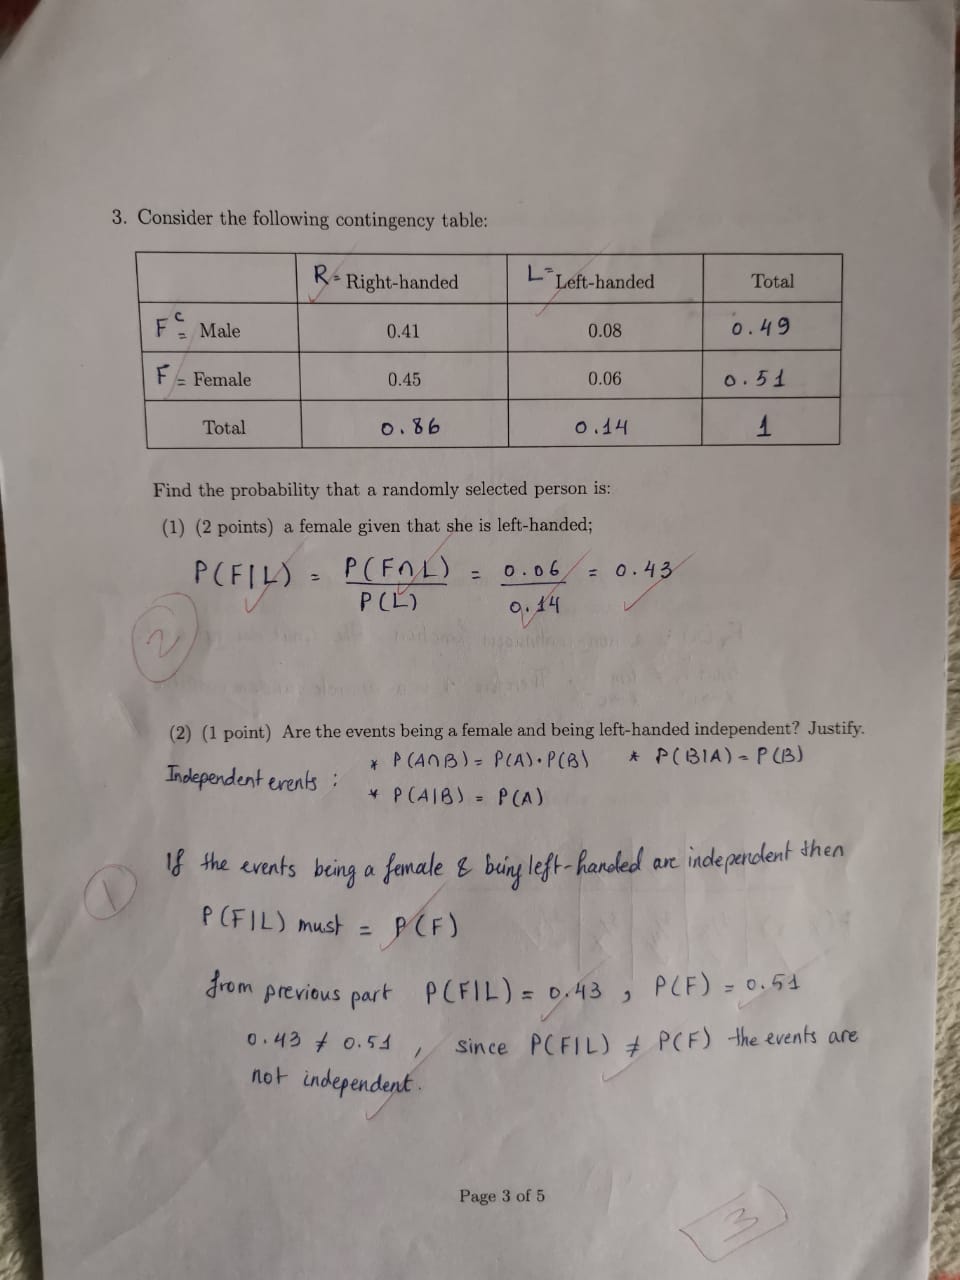 3. Consider the following contingency table:
R = Right-handed L = Left-handed Total
Fᶜ = Male 0.41 0.08 0.49
F = Female 0.45 0.06 0.51
Total 0.86 0.14 1
Find the probability that a randomly selected person is:
(1) (2 points) a female given that she is left-handed;
P(F|L) = P(F∩L) / P(L) = 0.06 / 0.14 = 0.43
2
(2) (1 point) Are the events being a female and being left-handed independent? Justify.
Independent events : * P(A∩B) = P(A)·P(B) * P(B|A) = P(B)
* P(A|B) = P(A)
If the events being a female & being left-handed are independent then
1
P(F|L) must = P(F)
from previous part P(F|L) = 0.43 , P(F) = 0.51
0.43 ≠ 0.51 , since P(F|L) ≠ P(F) the events are
not independent.
Page 3 of 5
3